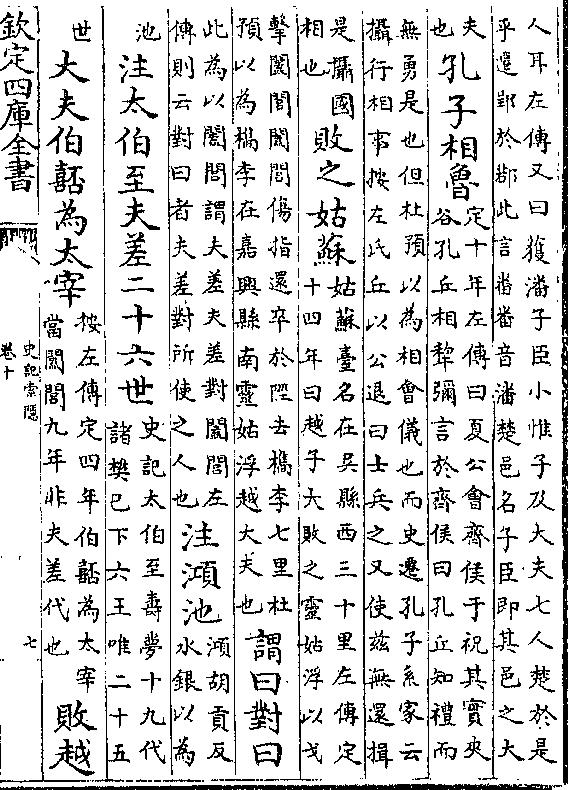 人耳左傳又曰獲潘子臣小惟子及大夫七人楚於是
乎遷郢於鄀此言番番音潘楚邑名子臣即其邑之大
夫
也
孔子相魯
定十年左傳曰夏公會齊侯于祝其實夾
谷孔丘相犂彌言於齊侯曰孔丘知禮而
無勇是也但杜預以為相會儀也而史遷孔子系家云
攝行相事按左氏丘以公退曰士兵之又使茲無還揖
是攝國
相也
敗之姑蘇
姑蘇臺名在吳縣西三十里左傳定
十四年曰越子大敗之靈姑浮以戈
擊闔閭闔閭傷指還卒於陘去檇李七里杜
預以為檇李在嘉興縣南靈姑浮越大夫也
謂曰對曰
此為以闔閭謂夫差夫差對闔閭左
傳則云對曰者夫差對所使之人也
注澒池
澒胡貢反
水銀以為
池
注太伯至夫差二十六世
史記太伯至壽夢十九代
諸樊已下六王唯二十五
世
大夫伯嚭為太宰
按左傳定四年伯嚭為太宰
當闔閭九年非夫差代也
敗越
欽定四庫全書
史記索隱
卷十
七